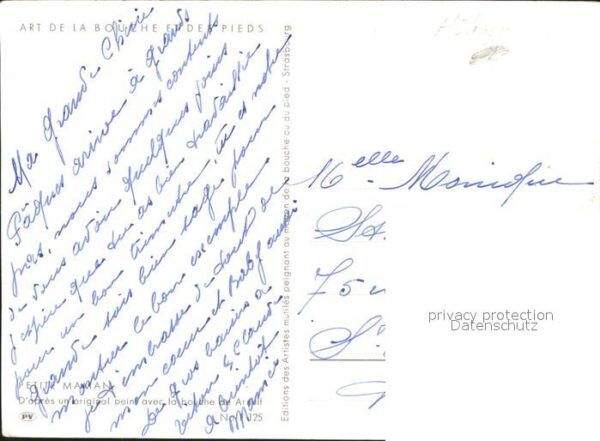 ART DE LA BOUCHE ET DES PIEDS
Ma grande Chérie
Pâques arrive à grands
pas, nous sommes contents
de vous avoir quelques jours
j'espère que tu as bien travaillé
pour un bon trimestre, tu es notre
grande sois bien sage pour
montrer le bon exemple
je t'embrasse de tout
mon coeur
bientôt
PETITE MAMAN
D'après un original peint avec la bouche de
PV
No. 125
Editions des Artistes mutilés peignant au moyen de la bouche ou du pied - Strasbourg
Melle Monique
St.
privacy protection
Datenschutz